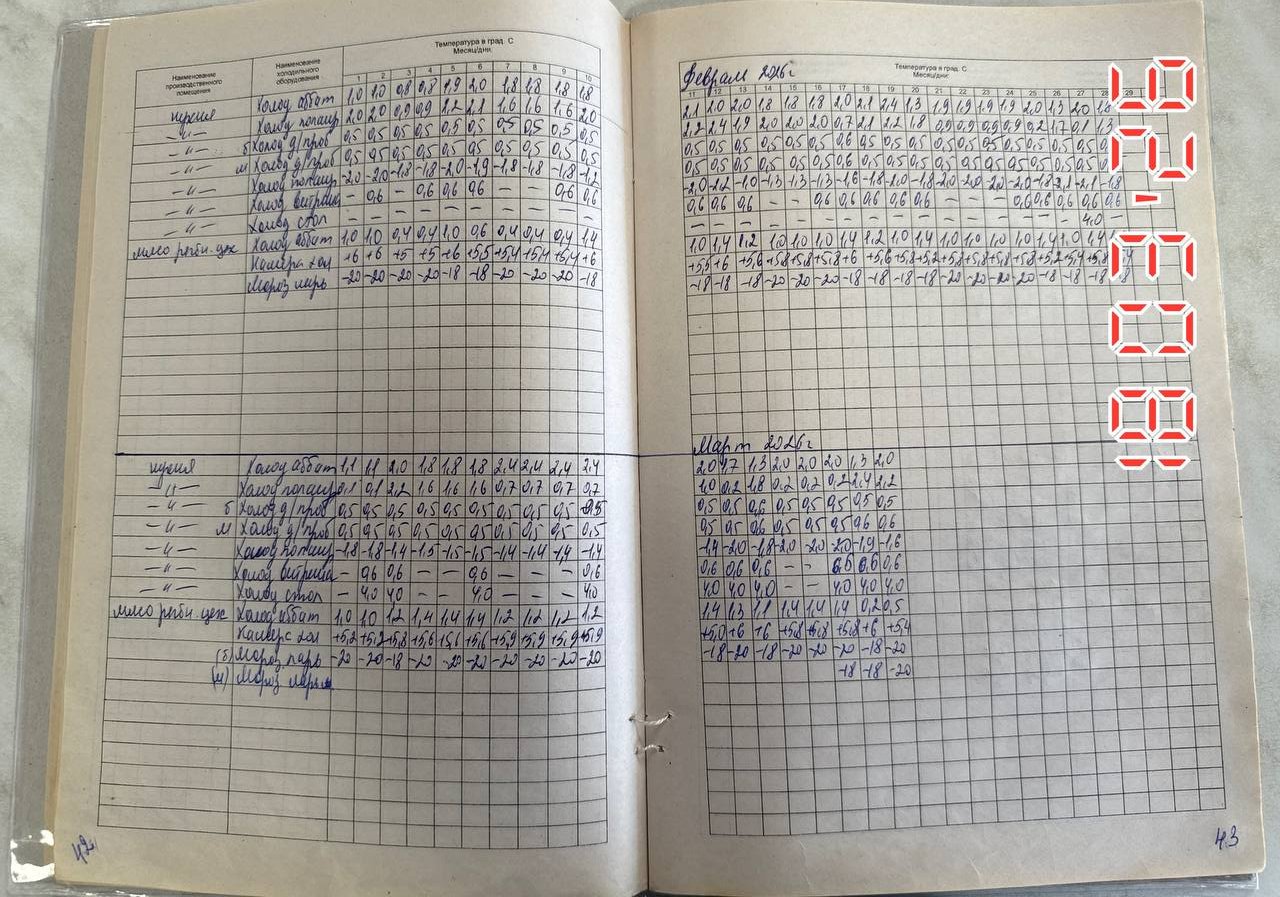 Температура в град. С
Месяц/дни:
Наименование производственного помещения
Наименование холодильного оборудования
1 2 3 4 5 6 7 8 9 10
Холод аббат 1,0 1,0 0,8 0,8 1,9 2,0 1,8 1,8 1,8 1,8
2,0 2,0 0,9 0,9 2,2 2,1 1,6 1,6 1,6 2,0
-"- б Холод д/проб 0,5 0,5 0,5 0,5 0,5 0,5 0,5 0,5 0,5 0,5
-"- м Холод д/проб 0,5 0,5 0,5 0,5 0,5 0,5 0,5 0,5 0,5 0,5
-"- -2,0 -2,0 -1,8 -1,8 -2,0 -1,9 -1,8 -1,8 -1,8 -1,2
-"- Холод витрина — 0,6 — 0,6 0,6 0,6 — — 0,6 0,6
-"- Холод стол — — — — — — — — — —
Холод аббат 1,0 1,0 0,4 0,4 1,0 0,6 0,4 0,4 0,4 1,4
Камера хол +6 +6 +5 +5 +6 +5,5 +5,4 +5,4 +5,4 +6
Мороз ларь -20 -20 -20 -20 -18 -18 -20 -20 -20 -18
Холод аббат 1,1 1,1 2,0 1,8 1,8 1,8 2,4 2,4 2,4 2,4
-"- 0,1 0,1 2,2 1,6 1,6 1,6 0,7 0,7 0,7 0,7
-"- б Холод д/проб 0,5 0,5 0,5 0,5 0,5 0,5 0,5 0,5 0,5 0,5
-"- м Холод д/проб 0,5 0,5 0,5 0,5 0,5 0,5 0,5 0,5 0,5 0,5
-"- -1,8 -1,8 -1,4 -1,5 -1,5 -1,5 -1,4 -1,4 -1,4 -1,4
-"- Холод витрина — 0,6 0,6 — — 0,6 — — — 0,6
-"- Холод стол — 4,0 4,0 — — 4,0 — — — 4,0
Холод аббат 1,0 1,0 1,2 1,4 1,4 1,4 1,2 1,2 1,2 1,2
Камера хол +5,2 +5,2 +5,8 +5,6 +5,6 +5,6 +5,9 +5,9 +5,9 +5,9
(б) Мороз ларь -20 -20 -18 -20 -20 -20 -20 -20 -20 -20
(м) Мороз ларь
42
Февраль 2026г
Температура в град. С
Месяц/дни:
11 12 13 14 15 16 17 18 19 20 21 22 23 24 25 26 27 28 29
2,1 2,0 2,0 1,8 1,8 1,8 2,0 2,1 2,4 1,3 1,9 1,9 1,9 1,9 2,0 1,3 2,0
2,2 2,4 1,9 2,0 2,0 2,0 0,7 2,1 2,2 1,8 0,9 0,9 0,9 0,9 0,2 1,7 0,1
0,5 0,5 0,5 0,5 0,5 0,5 0,6 0,5 0,5 0,5 0,5 0,5 0,5 0,5 0,5 0,5 0,5
0,5 0,5 0,5 0,5 0,5 0,5 0,6 0,5 0,5 0,5 0,5 0,5 0,5 0,5 0,5 0,5 0,5
-2,0 -2,2 -1,0 -1,3 -1,3 -1,3 -1,6 -1,8 -2,0 -1,8 -2,0 -2,0 -2,0 -2,0 -1,8 -2,1 -1,8
0,6 0,6 0,6 — — 0,6 0,6 0,6 0,6 0,6 — — — 0,6 0,6 0,6 0,6 0,6
4,0
1,0 1,4 1,2 1,0 1,0 1,0 1,4 1,2 1,0 1,4 1,0 1,0 1,0 1,0 1,4 1,0 1,4
+5,5 +6 +5,6 +5,8 +5,8 +5,8 +6 +5,6 +5,8 +5,2 +5,8 +5,8 +5,8 +5,8 +5,2 +5,4 +5,8
-18 -18 -18 -20 -20 -20 -18 -18 -18 -18 -20 -20 -20 -20 -18 -18 -18 -18
Март 2026г
2,0 1,7 1,3 2,0 2,0 2,0 1,3 2,0
1,0 0,2 1,8 0,2 0,2 0,2 2,4 2,2
0,5 0,5 0,6 0,5 0,5 0,5 0,5 0,5
0,5 0,5 0,6 0,5 0,5 0,5 0,6 0,6
-1,4 -2,0 -1,8 -2,0 -2,0 -2,0 -1,9 -1,6
0,6 0,6 0,6 — — 0,6 0,6 0,6
4,0 4,0 4,0 — — 4,0 4,0 4,0
1,4 1,3 1,1 1,4 1,4 1,4 0,2 0,5
+5,0 +6 +6 +5,8 +5,8 +5,8 +6 +5,4
-18 -20 -18 -20 -20 -20 -18 -20
-18 -18 -20
43